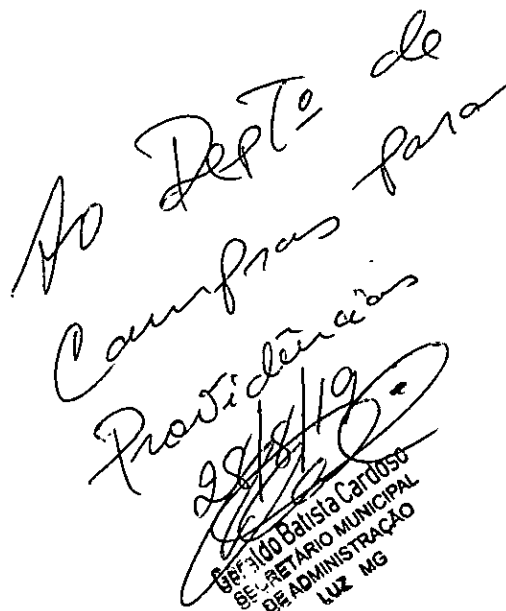 Ao Deptº de
Compras para
Providências
28/8/19
Geraldo Batista Cardoso
SECRETÁRIO MUNICIPAL
DE ADMINISTRAÇÃO
LUZ MG